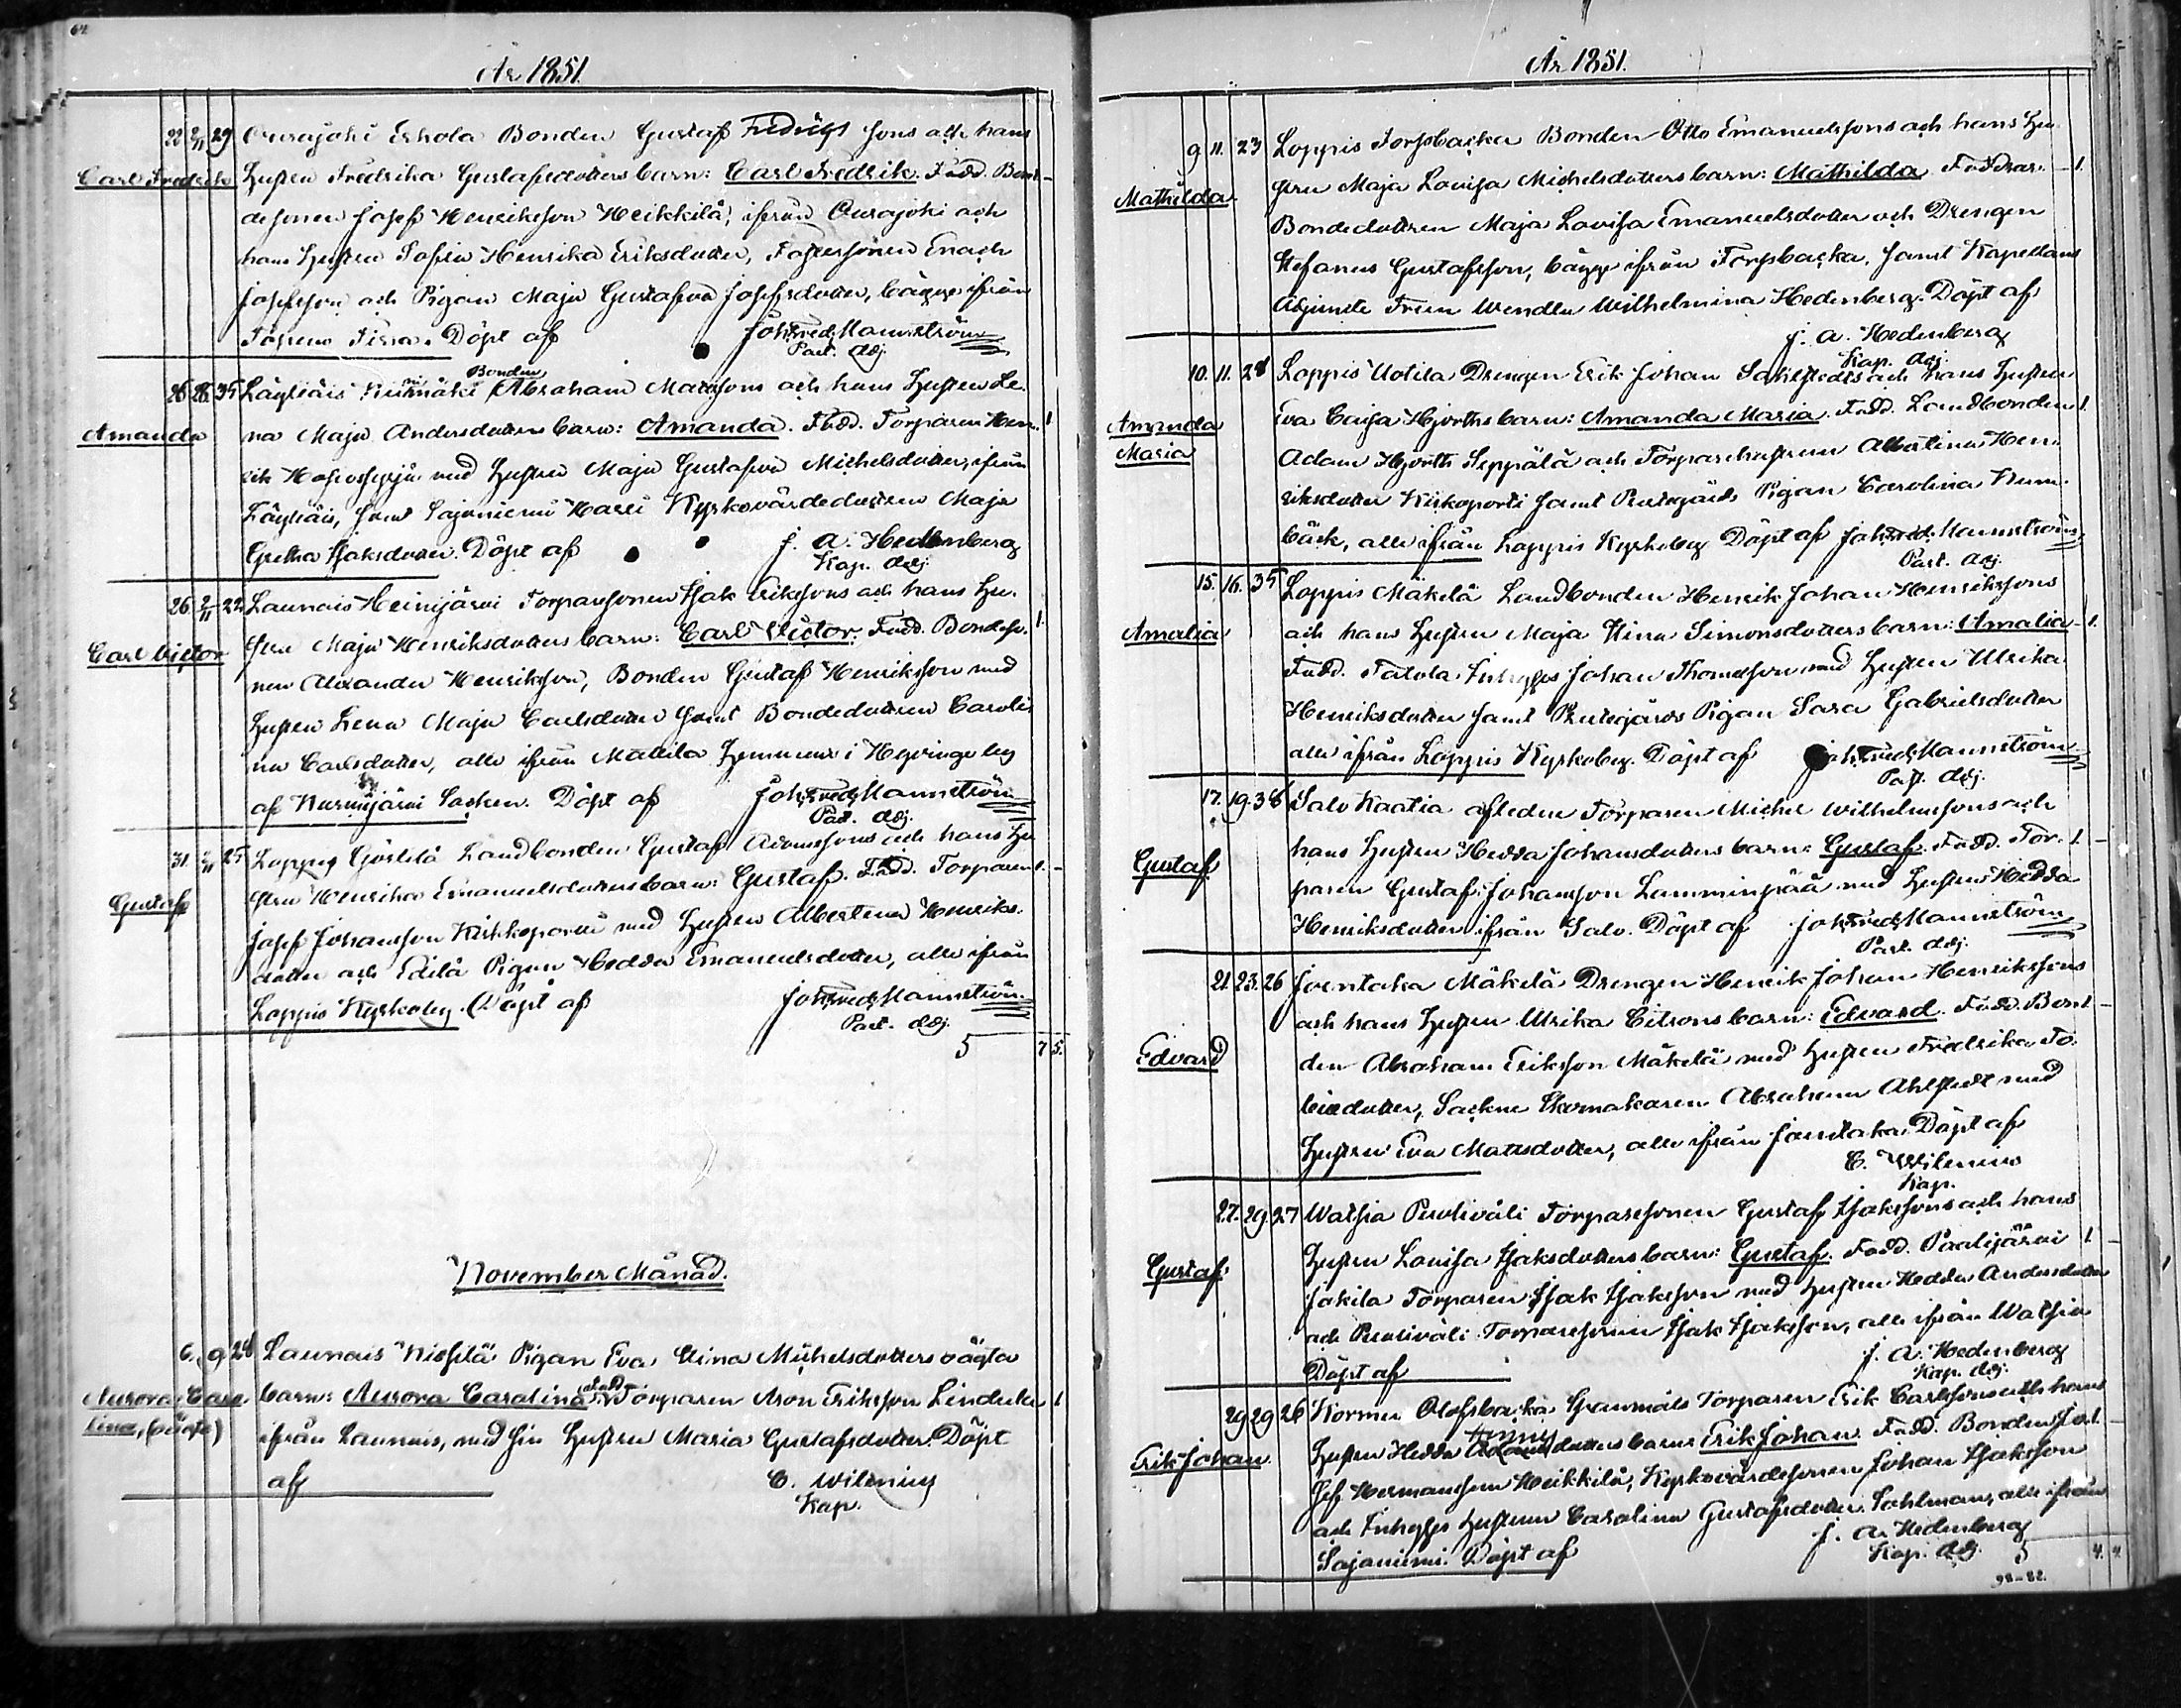 64
År 1851.
22 2/11 29 Ourajoki Erkola Bonden Gustaf Fredrigs sons och hans
Carl Fredrik Hustru Fredrika Gustafsdotters barn: Carl Fredrik. Fadd. Bon-
desonen Josef Henriksson Heikkilä, ifrån Ourajoki och
hans Hustru Sofia Henrika Eriksdotter, Enoch
Josefsson och Pigan Maja Gustafva Josefsdotter, bägge ifrån
Döpt af Joh. Fred. Mannström
Past. Adj.
Bonden
26 28 35 Läyliäis Abraham Matssons och hans Hustru Le-
Amanda na Maja Andersdotters barn: Amanda. Fadd. Torparen Hen- 1
rik med Hustru Maja Gustafva Michelsdotter, ifrån
Läyliäis, samt Sajaniemi Kyrkovärdedottren Maja
Isaksdotter. Döpt af J. A. Hedenberg
Kap. Adj.
26 2/11 22 Launois Heinijärvi Torparesonen Isak Erikssons och hans Hu-
stru Maja Henriksdotters barn: Carl Victor. Fadd. Bondeso- 1
Carl Victor
nen Alexander Henriksson, Bonden Gustaf Henriksson med
Hustru Lena Maja Carlsdotter samt Bondedottren Caroli-
na Carlsdotter, alle ifrån Mattila Hemman i by
af Nurmijärvi Socken. Döpt af Joh. Fred. Mannström
Past. Adj.
31. 2/11 25 Loppis Landbonden Gustaf Adamssons och hans Hu-
stru Henrika Emanuelsdotters barn: Gustaf. Fadd. Torparen 1 -
Gustaf
Josef Johansson Kirkkoportti med Hustru Albertina Henriks-
dotter och Edilä Pigan Hedda Emanuelsdotter, alle ifrån
Loppis Kyrkoby. Döpt af Joh. Fred. Mannström
Past. Adj.
5 7 5.
November Månad.
6. 9 28 Launois Pigan Eva Stina Michelsdotters oägta
Aurora Caro- barn: Aurora Carolina Fadd. Torparen Aron Eriksson 1
lina, (oägta) ifrån Launois, med sin Hustru Maria Gustafsdotter. Döpt
af C. Wilenius
Kap.
År 1851.
9 11. 23 Loppis Torfsbacka Bonden Otto Emanuelssons och hans Hu-
stru Maja Lovisa Michelsdotters barn: Mathilda Faddrar. - 1.
Mathilda
Bondedottren Maja Lovisa Emanuelsdotter och Drengen
Stefanus Gustafsson, bägge ifrån Torfsbacka, samt Kapellans
Adjuncts Frun Wendla Wilhelmina Hedenberg. Döpt af
J. A. Hedenberg
Kap. Adj.
10. 11. 28 Loppis Uotila Drengen Erik Johan Sahlstedts och hans Hustru
Amanda Eva Caisa Hjorths barn: Amanda Maria. Fadd. Landbonden 1.
Maria
Adam Hjorth Seppälä och Torparehustrun Albertina Hen-
riksdotter Kirkoporti samt Prestgårds Pigan Carolina
bäck, alle ifrån Loppis Kyrkoby Döpt af Joh. Fred. Mannström
Past. Adj.
15. 16. 35 Loppis Mäkelä Landbonden Henrik Johan Henrikssons
och hans Hustru Maja Stina Simonsdotters barn: Amalia - 1.
Amalia
Fadd. Tatola Inhyses Johan Thomasson med Hustru Ulrika
Henriksdotter samt Prestgårds Pigan Sara Gabrielsdotter
alle ifrån Loppis Kyrkoby. Döpt af Joh. Fred. Mannström
Past. Adj.
17. 19 38 Salo Kaatia afledne Torparen Michel Wilhelmssons och
hans Hustru Hedda Johansdotters barn: Gustaf. Fadd. Tor- 1 -
Gustaf
paren Gustaf Johansson Lamminpää med Hustru Hedda
Henriksdotter ifrån Salo. Döpt af Joh. Fred. Mannström
Past. Adj.
21. 23. 26 Joentaka Mäkelä Drengen Henrik Johan Henrikssons
och hans Hustru Ulrika Citrons barn: Edvard. Fadd. Bon- 1 -
Edvard
den Abraham Eriksson Mäkelä med Hustru Fredrika To-
biedotter, Socken Skomakaren Abraham Ahlstedt med
Hustru Eva Matsdotter, alle ifrån Joentaka. Döpt af
C. Wilenius
Kap.
27. 29 27 Watsia Torparesonen Gustaf Isakssons och hans
Hustru Lovisa Isaksdotters barn: Gustaf. Fadd. Paalijärvi 1 -
Gustaf.
Jakila Torparen Isak Isaksson med Hustru Hedda Andersdotter
och Torparesonen Isak Isaksson, alle ifrån Watsia
Döpt af J. A. Hedenberg
Kap. Adj.
29 29 26 Kormu Olofsbacka Torparen Erik Carlssons och hans
Hustru Hedda barn: Erik Johan. Fadd. Bonden Jo- 1. -
Erik Johan
sef Hermansson Heikkilä, Kyrkovärdesonen Johan Isaksson
och Inhyses Hustrun Carolina Gustafsdotter Sahlman, alle ifrån
Sajaniemi. Döpt af J. A. Hedenberg
Kap. Adj. 5 4. 4.
98-82.